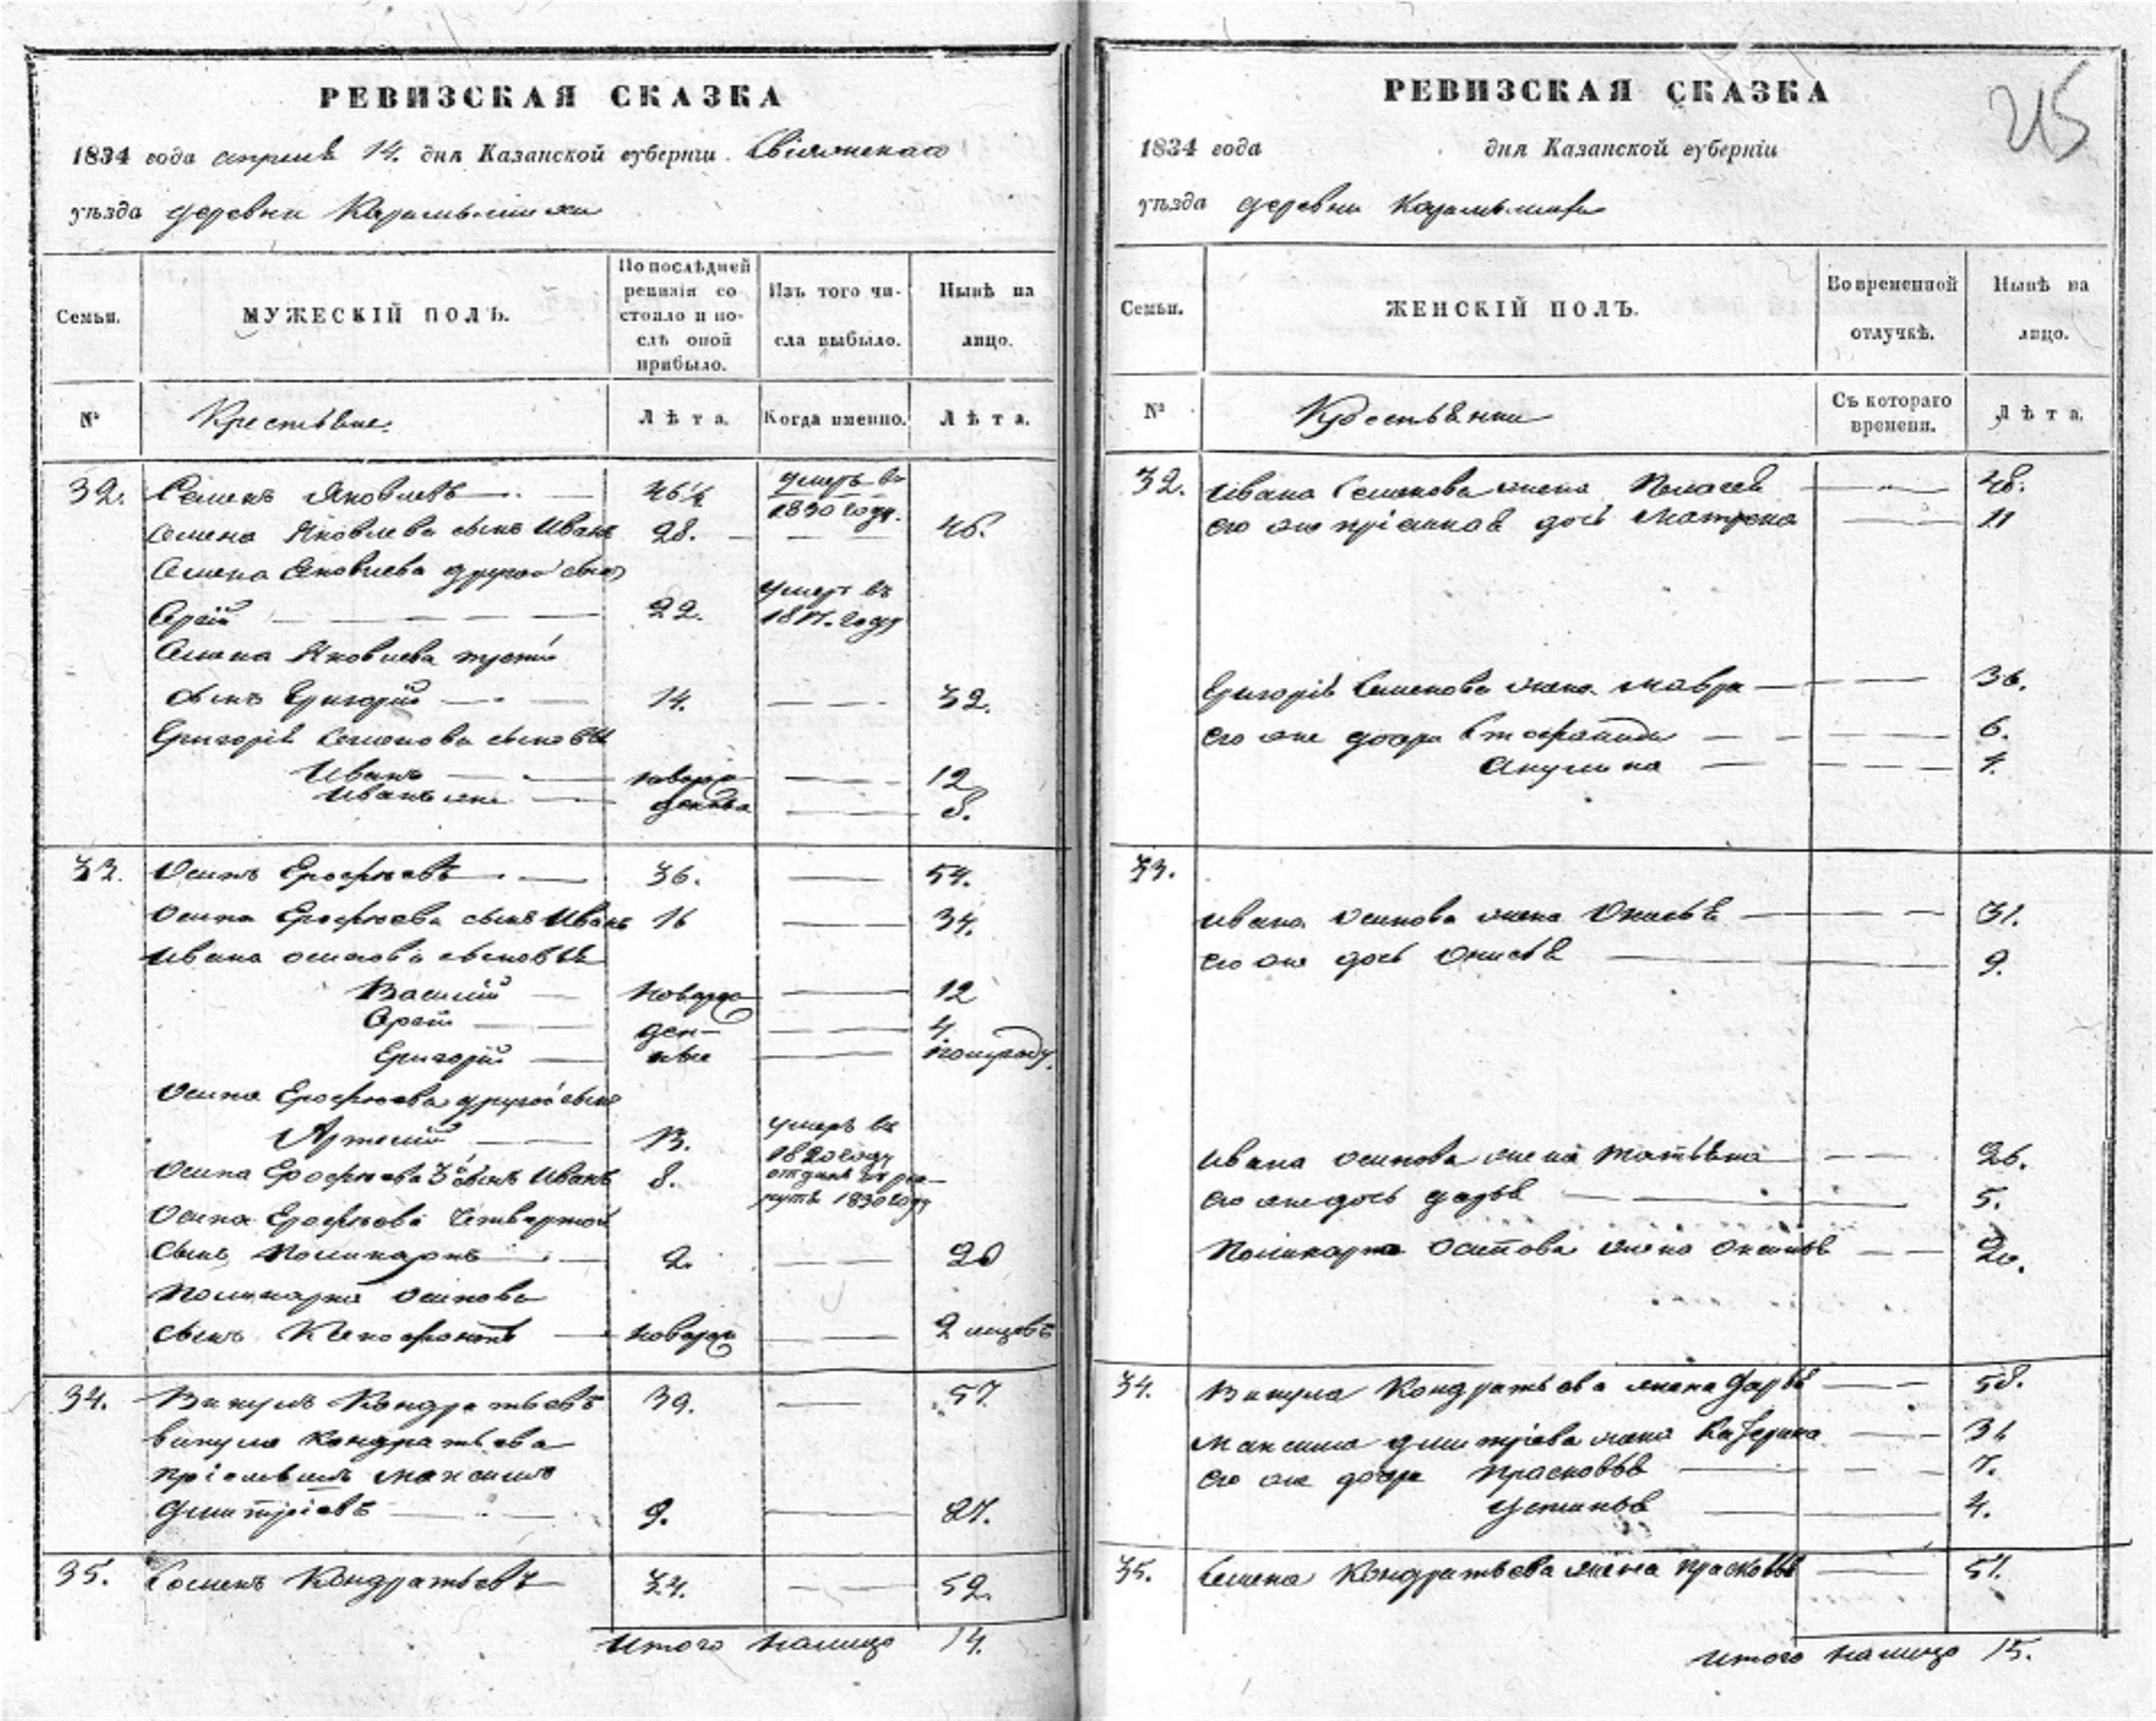 РЕВИЗСКАЯ СКАЗКА
1834 года апреля 14. дня Казанской губернiи Свiяжскаго
уѣзда деревни
Семьи.
МУЖЕСКIЙ ПОЛЪ.
По послѣдней ревизiи состояло и послѣ оной прибыло.
Изъ того числа выбыло.
Нынѣ на лицо.
№
Крестьяне.
Лѣта.
Когда именно.
Лѣта.
32. Семенъ Яковлевъ 46½ умеръ въ 1830 году.
Семена Яковлева сынъ Иванъ 28. 46.
Семена Яковлева другой сынъ
22. умеръ въ
году
Семена Яковлева третiй
сынъ Григорiй 14. 32.
Григорiя Семенова сыновья
Иванъ новоро 12
Иванъ же 8.
33. Осипъ Ерофѣевъ 36. 54.
Осипа Ерофѣева сынъ Иванъ 16 34.
Ивана Осипова сыновья
Василiй новорож 12
ден 4.
Григорiй ные полугоду.
Осипа Ерофѣева другой сынъ
Артемiй 13. умеръ въ 1820 году
Осипа Ерофѣева 3й сынъ Иванъ 8. отданъ въ рекруты 1830 году
Осипа Ерофѣева четвертой
сынъ Поликарпъ 2. 20
Поликарпа Осипова
сынъ Ксенофонтъ новорож 2 месяц
34. Викулъ Кондратьевъ 39. 57
Викула Кондратьева
прiемышъ Максимъ
Дмитрiевъ 9. 27.
35. Семенъ Кондратьевъ 34. 52.
Итого налицо 14.
РЕВИЗСКАЯ СКАЗКА
1834 года дня Казанской губернiи
уѣзда деревни
Семьи.
ЖЕНСКIЙ ПОЛЪ.
Во временной отлучкѣ.
Нынѣ на лицо.
№
Крестьянки
Съ котораго времени.
Лѣта.
32. Ивана Семенова жена Пелагея 48.
его же прiемная дочь Матрена 11
Григорiя Семенова жена Мавра 36.
его же дочери 6.
Акулина
33.
Ивана Осипова жена Онисья 31.
его же дочь Онисья 9.
Ивана Осипова жена Татьяна 26.
его же дочь Дарья 5.
Поликарпа Осипова жена 20.
34. Викула Кондратьева жена Дарья 58.
Максима Дмитрiева жена Катерина 31
его же дочери Прасковья 7.
Устинья 4.
35. Семена Кондратьева жена Прасковья 51.
Итого налицо 15.